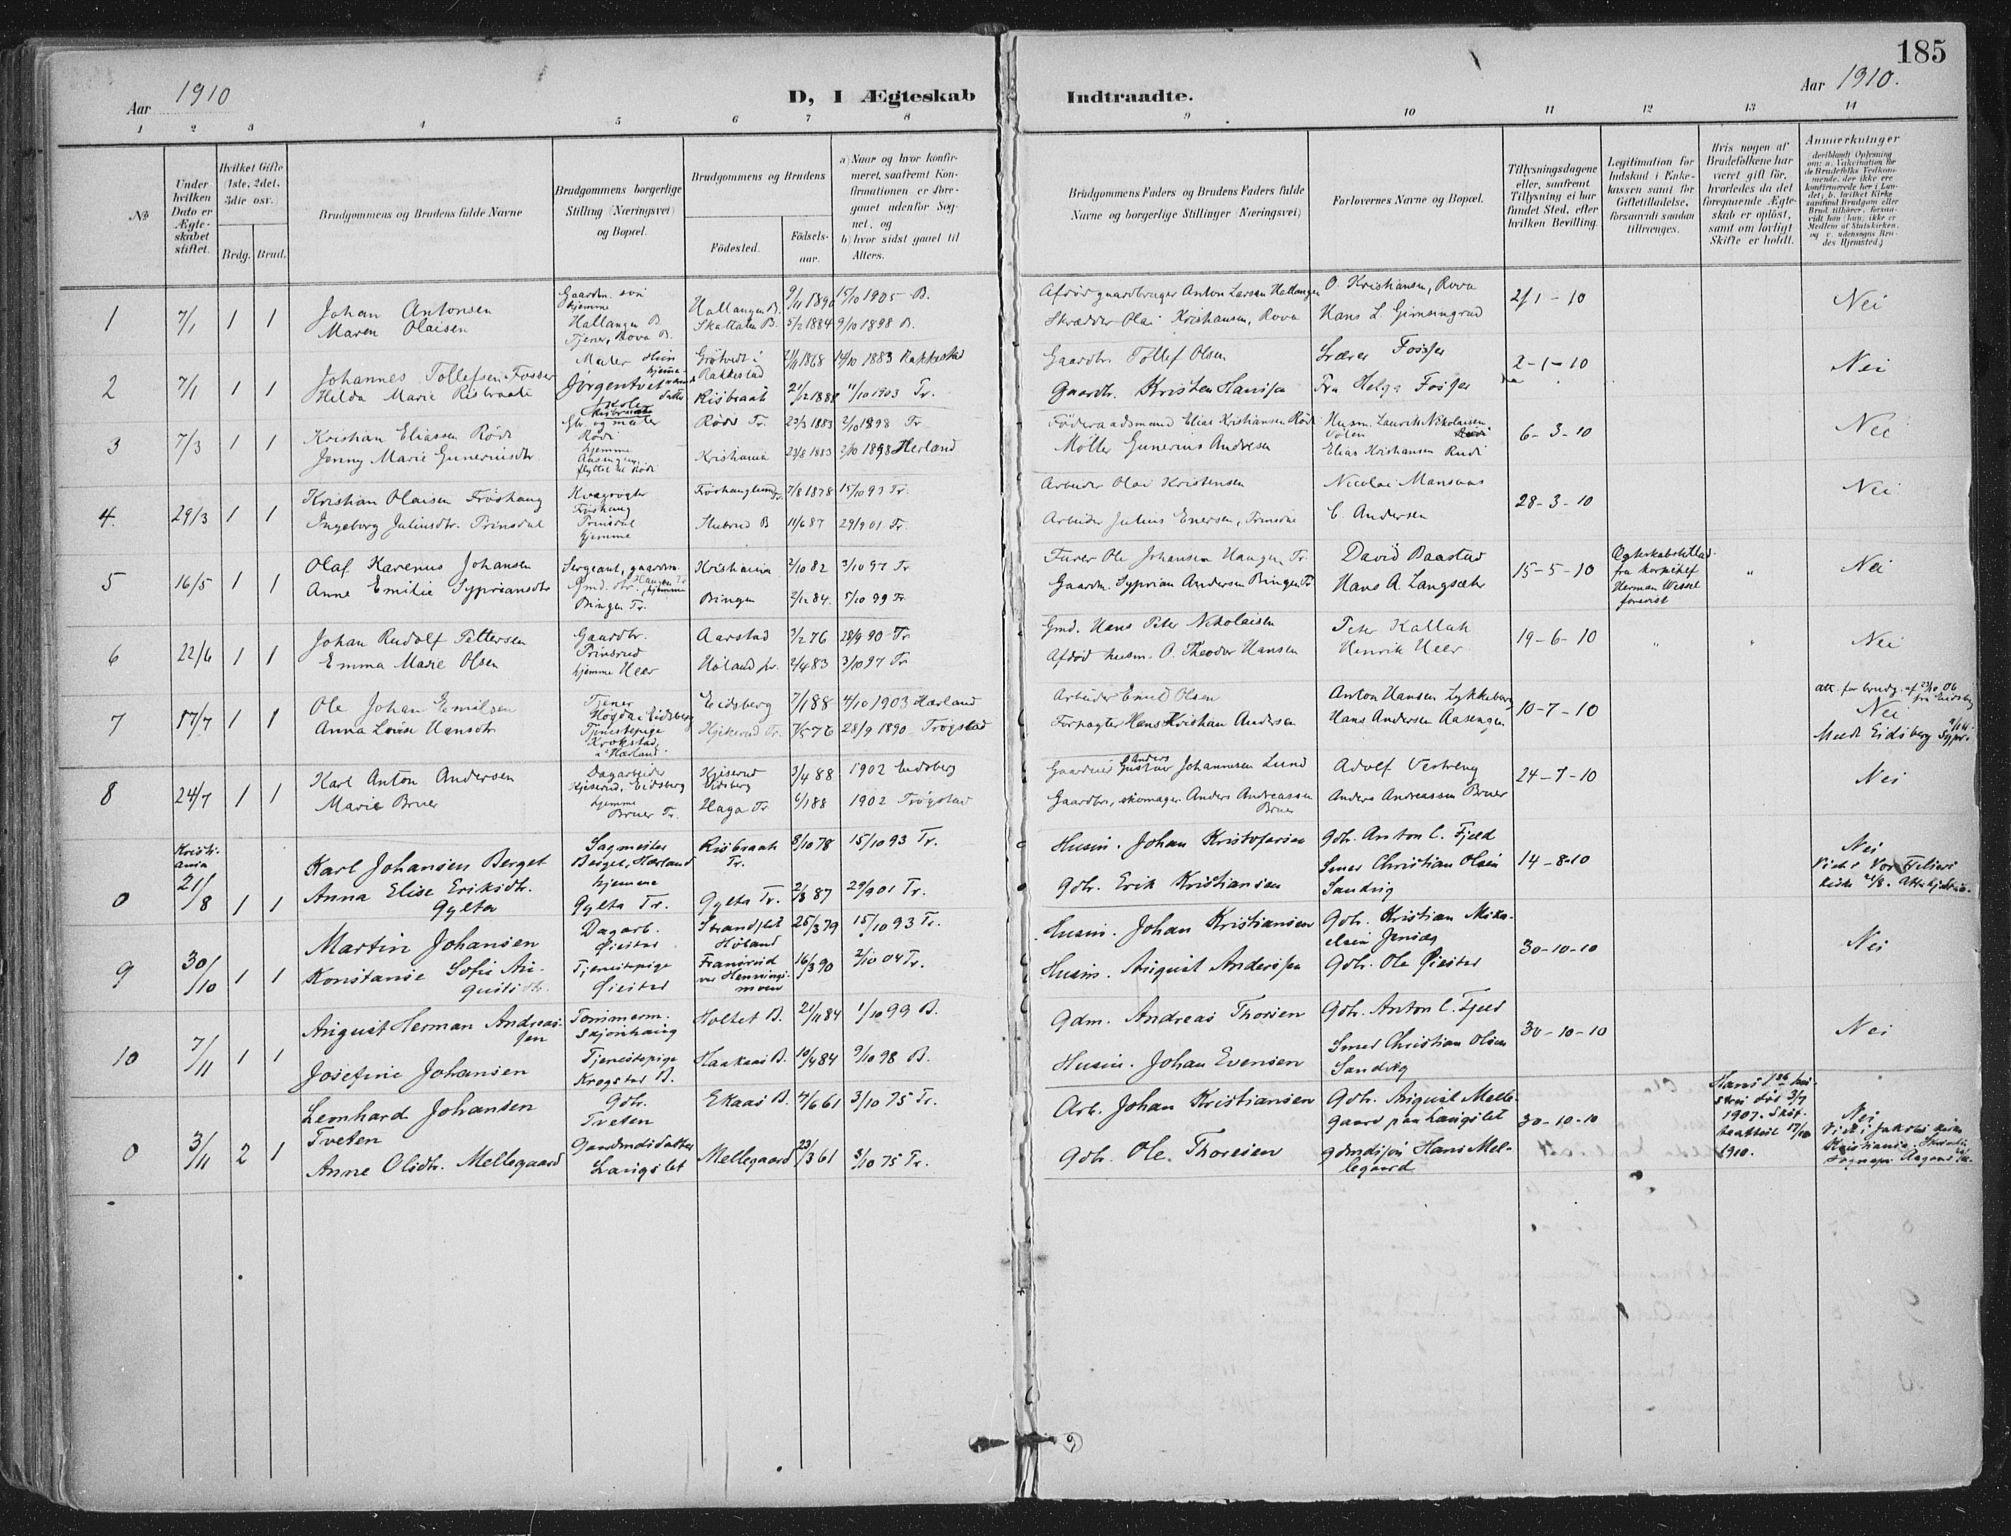 185
Aar 1910
D, I Ægteskab Indtraadte.
Aar 1910.
1 2 3 4 5 6 7 8 9 10 11 12 13 14
No
Under hvilken Dato er Ægteskabet stiftet.
Hvilket Gifte (1ste, 2det, 3die osv.)
Brdg. Brud.
Brudgommens og Brudens fulde Navne
Brudgommens borgerlige Stilling (Næringsvei) og Bopæl.
Brudgommens og Brudens
Fødested.
Fødselsaar.
a) Naar og hvor konfirmeret, saafremt Konfirmationen er foregaaet udenfor Sognet, og
b) hvor sidst gaaet til Alters.
Brudgommens Faders og Brudens Faders fulde Navne og borgerlige Stillinger (Næringsvei)
Forlovernes Navne og Bopæl.
Tillysningsdagene eller, saafremt Tillysning ei har fundet Sted, efter hvilken Bevilling.
Legitimation for Indskud i Enkekassen samt for Giftetilladelse, forsaavidt saadan tiltrænges.
Hvis nogen af Brudefolkene har været gift før, hvorledes da det foregaaende Ægteskab er opløst, samt om lovligt Skifte er holdt.
Anmerkninger
1 7/1 1 1
Johan Antonsen
Maren Olaisen
Gaardm. søn hjemme
Hallangen B
Tjener, Rova B.
Hallangen B.
Skallalen B.
15/10 1905 B.
5/2 1884 9/10 1898 B.
Afdød gaardbruger Anton Larsen Hallangen
Skrædder Olai Kristiansen, Rova
O. Kristiansen, Rova
Hans L. Gimsingrud
2/1 - 10
Nei
2 7/1 1 1
Johannes Tollefsen Fosser
Hilda Marie Risbraate
Maler
Grötvedt i Rakkestad
Risbraat
1868 14/10 1883 Rakkestad
11/10 1903 Tr.
Gaardbr. Tollef Olsen
Gaardbr. Kristen Hansen
Lærer Fosser
Fru Helga Fosser
2-1-10
Nei
3 7/3 1 1
Kristian Eliassen Rödi
Jenny Marie Guneriusdtr
Gbr. og maler
Rödi
hjemme
Aasengen
flyttet til Rödi
Rødi Tr.
Kristiania
23/3 1883 2/10 1898 Tr
23/8 1883 2/10 1898 Herland
Föderaadsmand Elias Kristiansen Rödi
Møller Gunerius Andersen
Husm. Laurits Nikolaisen
Elias Kristiansen Rudi
6-3-10
Nei
4. 29/3 1 1
Kristian Olaisen Fröshaug
Ingeborg Juliusdtr. Prinsdal
Kvægrøgter
Fröshaug
Prinsdal
hjemme
Stubrud B
7/8 1878 15/10 93 Tr.
11/6 87 29/9 01 Tr.
Arbeider Olai Kristensen
Arbeider Julius Enersen, Prinsdal
Nicolai Mansaas
C. Andersen
28-3-10
Nei
5 16/5 1 1
Olaf Karenus Johansen
Anne Emilie Sypriansdtr
Sergeant, gaardm.
Haugen Tr
Gmd. dtr., hjemme
Bingen Tr.
Kristiania
Bingen
2/10 82 3/10 97 Tr
2/12 84. 5/10 99 Tr.
Furer Ole Johansen Haugen Tr.
Gaardm. Syprian Andersen Bingen Tr
David Baastad
Hans A. Langsæter
15-5-10
Egteskabstillad. fra Korpschef Herman Wessel forevist
"
Nei
6 22/6 1 1
Johan Rudolf Pettersen
Emma Marie Olsen
Gaardbr.
Prinsrud
hjemme Heer
Aarstad
Høland pr.
3/2 76 28/9 90 Tr
2/4 83 3/10 97 Tr.
Gmd. Hans Peter Nikolaisen
Afdød husm. O. Theodor Hansen
Peter Kallak
Henrik Heer
19-6-10
" "
Nei
7 17/7 1 1
Ole Johan Emilsen
Anna Lovise Hansdtr
Tjener
Høgda i Eidsberg
Tjenestepige
Krokstad
i Hærland
Eidsberg
Hjikerud Tr.
7/1 88 4/10 1903 Hærland
7/5 76 28/9 1890 Trøgstad
Arbeider Emil Olsen
Forpagter Hans Kristian Andersen
Anton Hansen Lykkeberg
Hans Andersen Aasengen
10-7-10
att. for brudg. af 23/10 06 fra Eidsberg
Nei
Meldt Eidsberg
8 24/7 1 1
Karl Anton Andersen
Marie Bruer
Dagarbeider
Kjiserud, Eidsberg
hjemme
Bruer Tr.
Kjiserud
Eidsberg
Haga Tr
3/4 88 1902 Eidsberg
6/1 88 1902 Trøgstad
Gaardeier Anders Gustav Johannesen Lund
Gaardbr, skomager Anders Andreassen Bruer
Adolf Vestreng
Anders Andreassen Bruer
24-7-10
Nei
Kristiania
0 21/8 1 1
Karl Johansen Berget
Anna Elise Eriksdtr. Gylta
Sagmester
Berget, Hærland
hjemme
Gylta Tr.
Risbraat Tr.
Gylta Tr.
8/10 78 15/10 93 Tr.
2/3 87 29/9 01 Tr.
Husm. Johan Kristofersen
Gbr. Erik Kristiansen
Gbr. Anton C. Fjeld
Smed Christian Olsen Sandvig
14-8-10
Nei
Viet i Vor Frelsers Kirke 21/8.
9 30/10 1 1
Martin Johansen
Konstanse Sofie Augustsdtr.
Dagarb.
Øiestad
Tjenestepige
Øiestad
Strandslet
Høland
Fransrud ved Henningsmoen
25/3 79 15/10 93 Tr.
16/3 90 2/10 04 Tr.
Husm. Johan Kristiansen
Husm. August Andersen
Gbr. Kristian Mikaelsen Jensæg
Gbr. Ole Øiestad
30-10-10
Nei
10 7/11 1 1
August Herman Andreassen
Josefine Johansen
Tømmerm.
Skjønhaug
Tjenestepige
Krogstad B.
Holtet B.
Haakaas B.
21/11 84 1/10 99 B.
10/4 84 9/10 98 B.
Gdm. Andreas Thorsen
Husm. Johan Evensen
Gbr. Anton C. Fjeld
Smed Christian Olsen Sandvig
30-10-10
Nei
0 3/11 2 1
Leonhard Johansen Tveten
Anne Olsdtr. Mellegaard
Gbr.
Tveten
Gaardmdsdatter
Langslet
Ekaas B.
Mellegaard
4/6 61 3/10 75 Tr.
23/3 61 3/10 75 Tr.
Arb. Johan Kristiansen
Gbr. Ole Thoresen
Gbr. August Mellegaard paa Langslet
Gdmdssøn Hans Mellegaard
30-10-10
Hans 1ste hustru død 3/9 1907. Skifteattest 17/10 1910.
Nei
Viet i Jakobs kirke Kristiania.